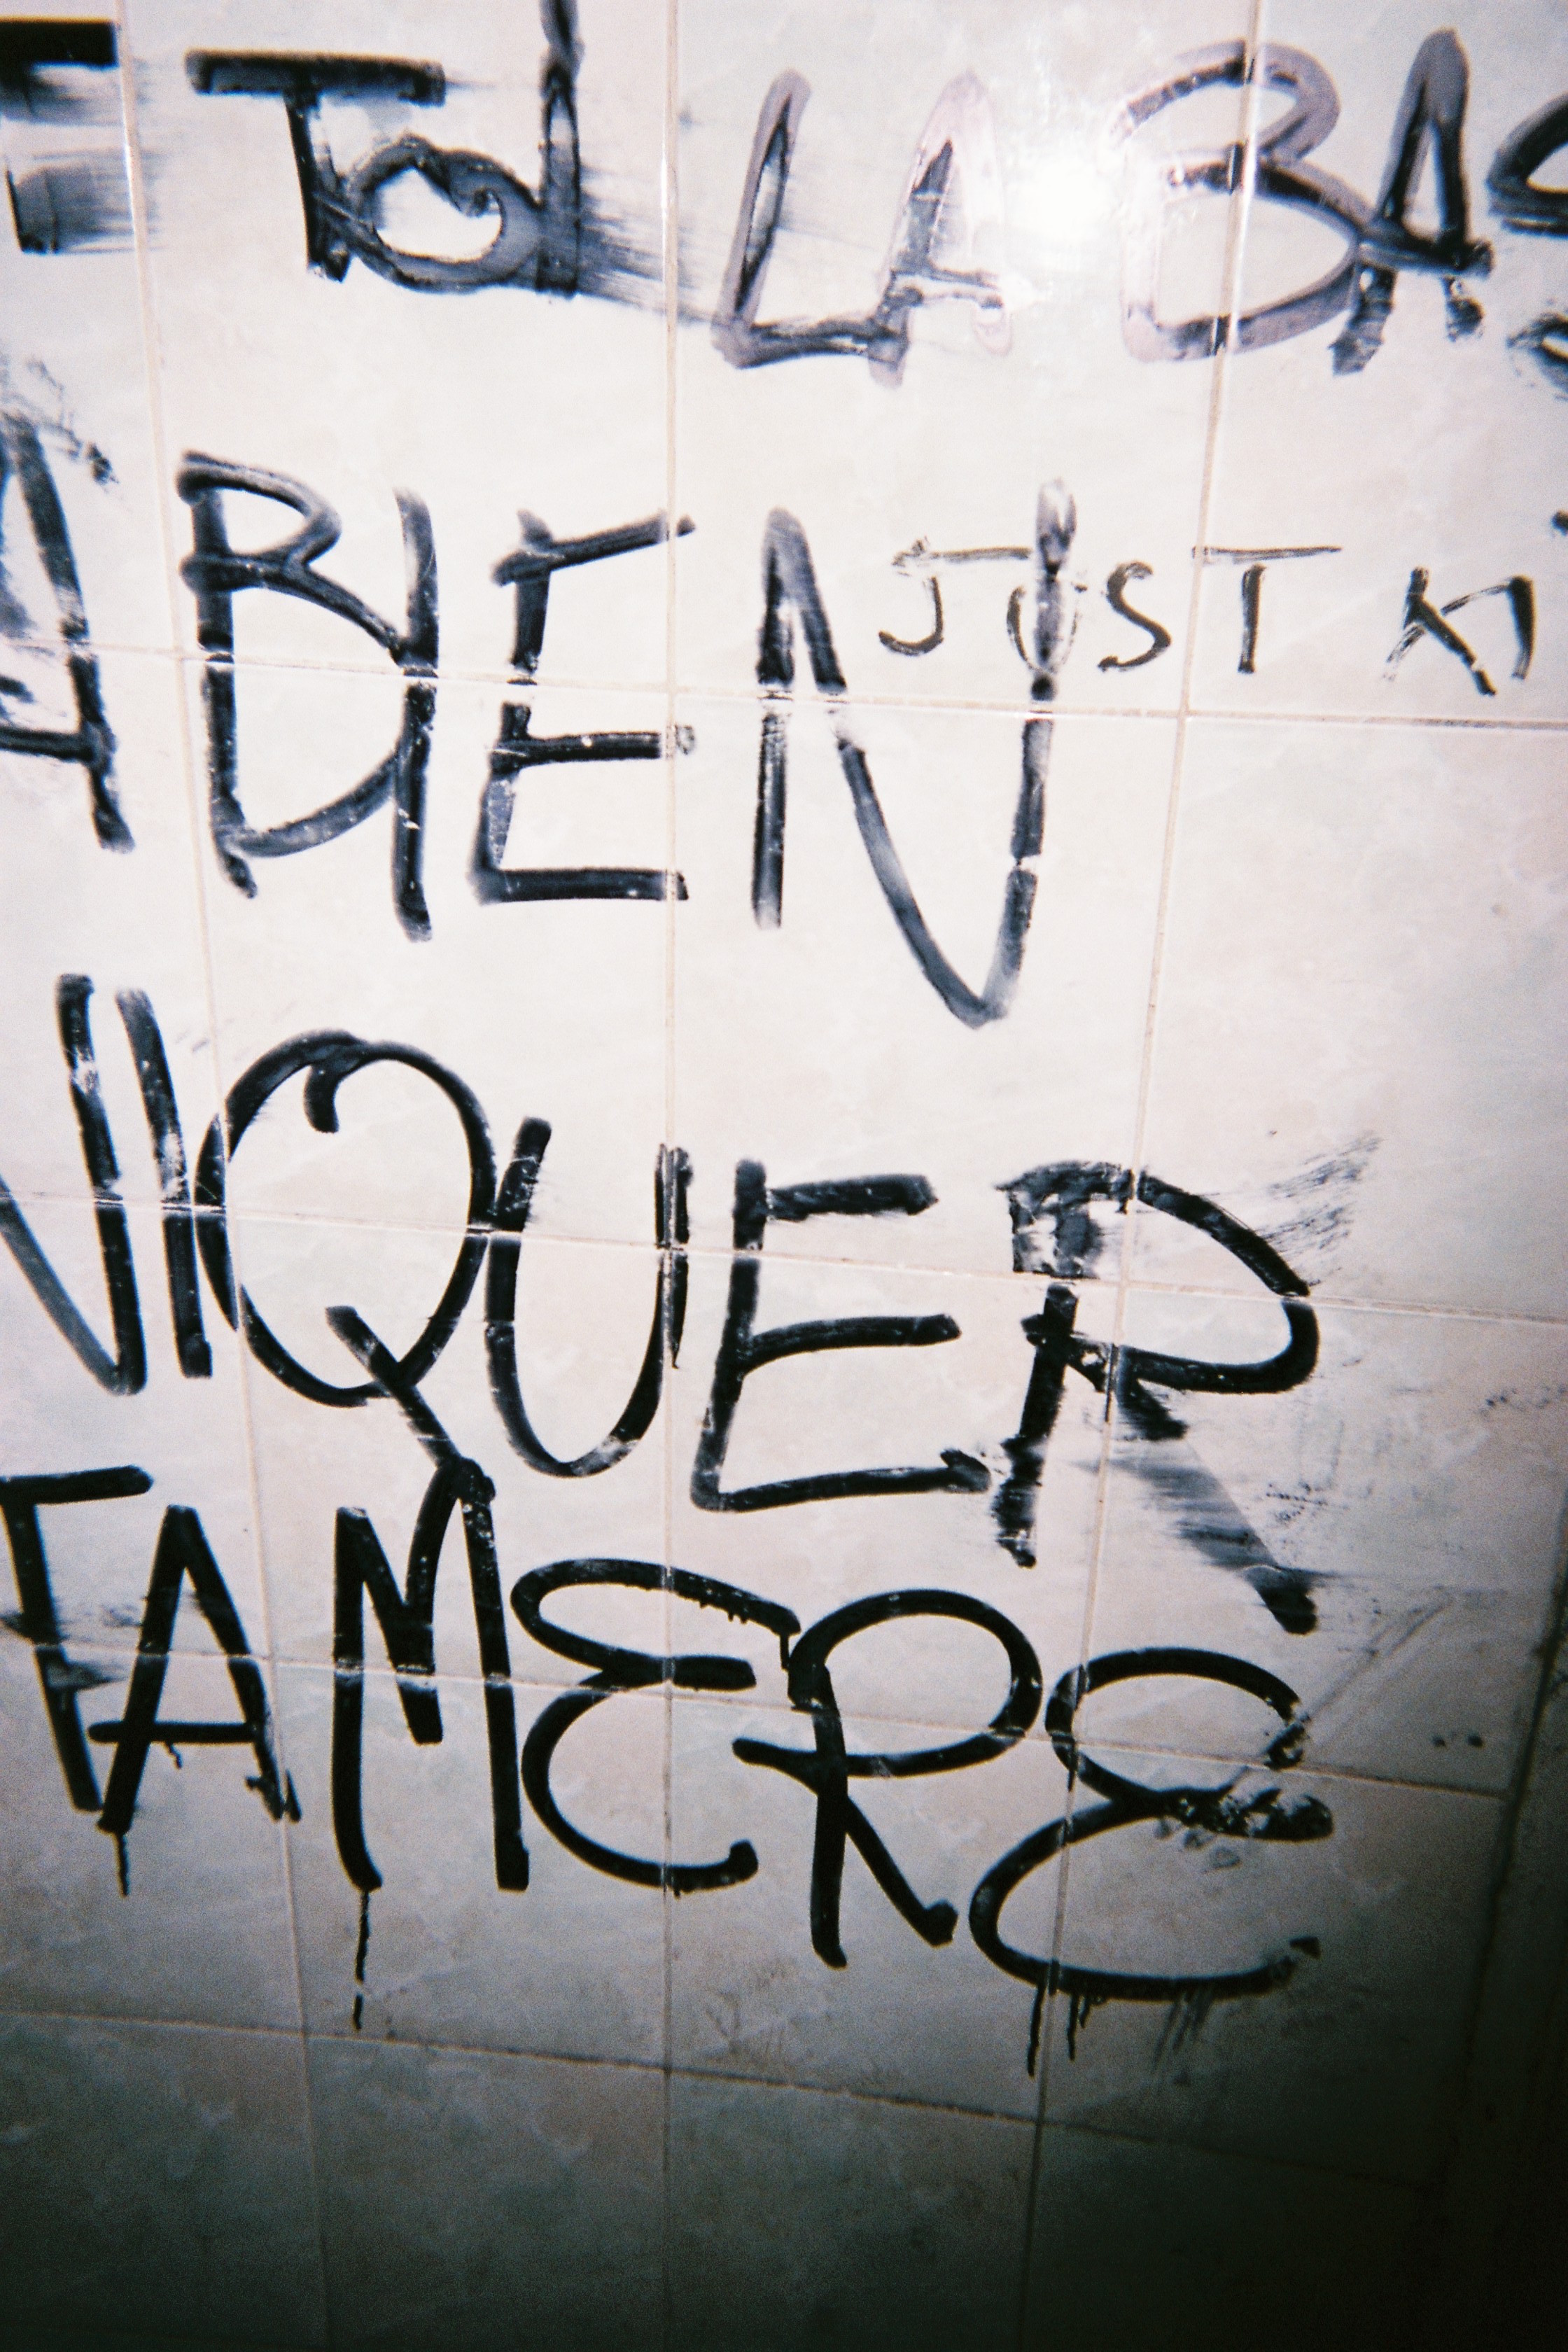 TOI LA BAS
A BIEN
JUST KI
NIQUER
TA MERE